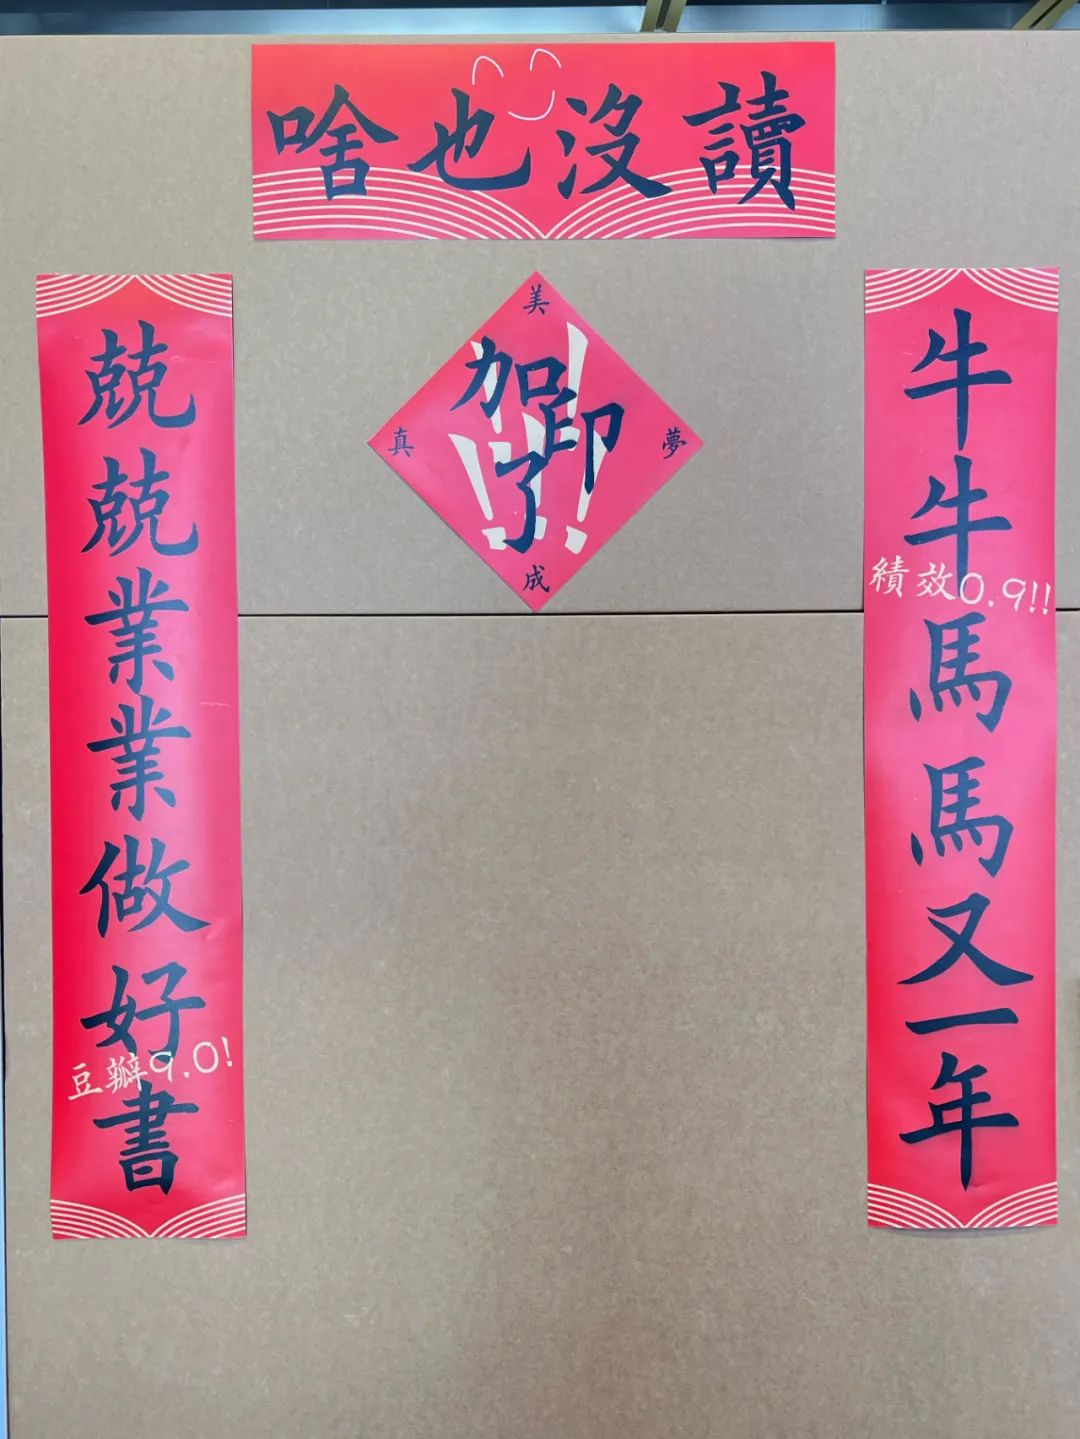 啥也沒讀
兢兢業業做好書
豆瓣9.0!
美
夢
成
真
加印了!!!
牛牛馬馬又一年
績效0.9!!